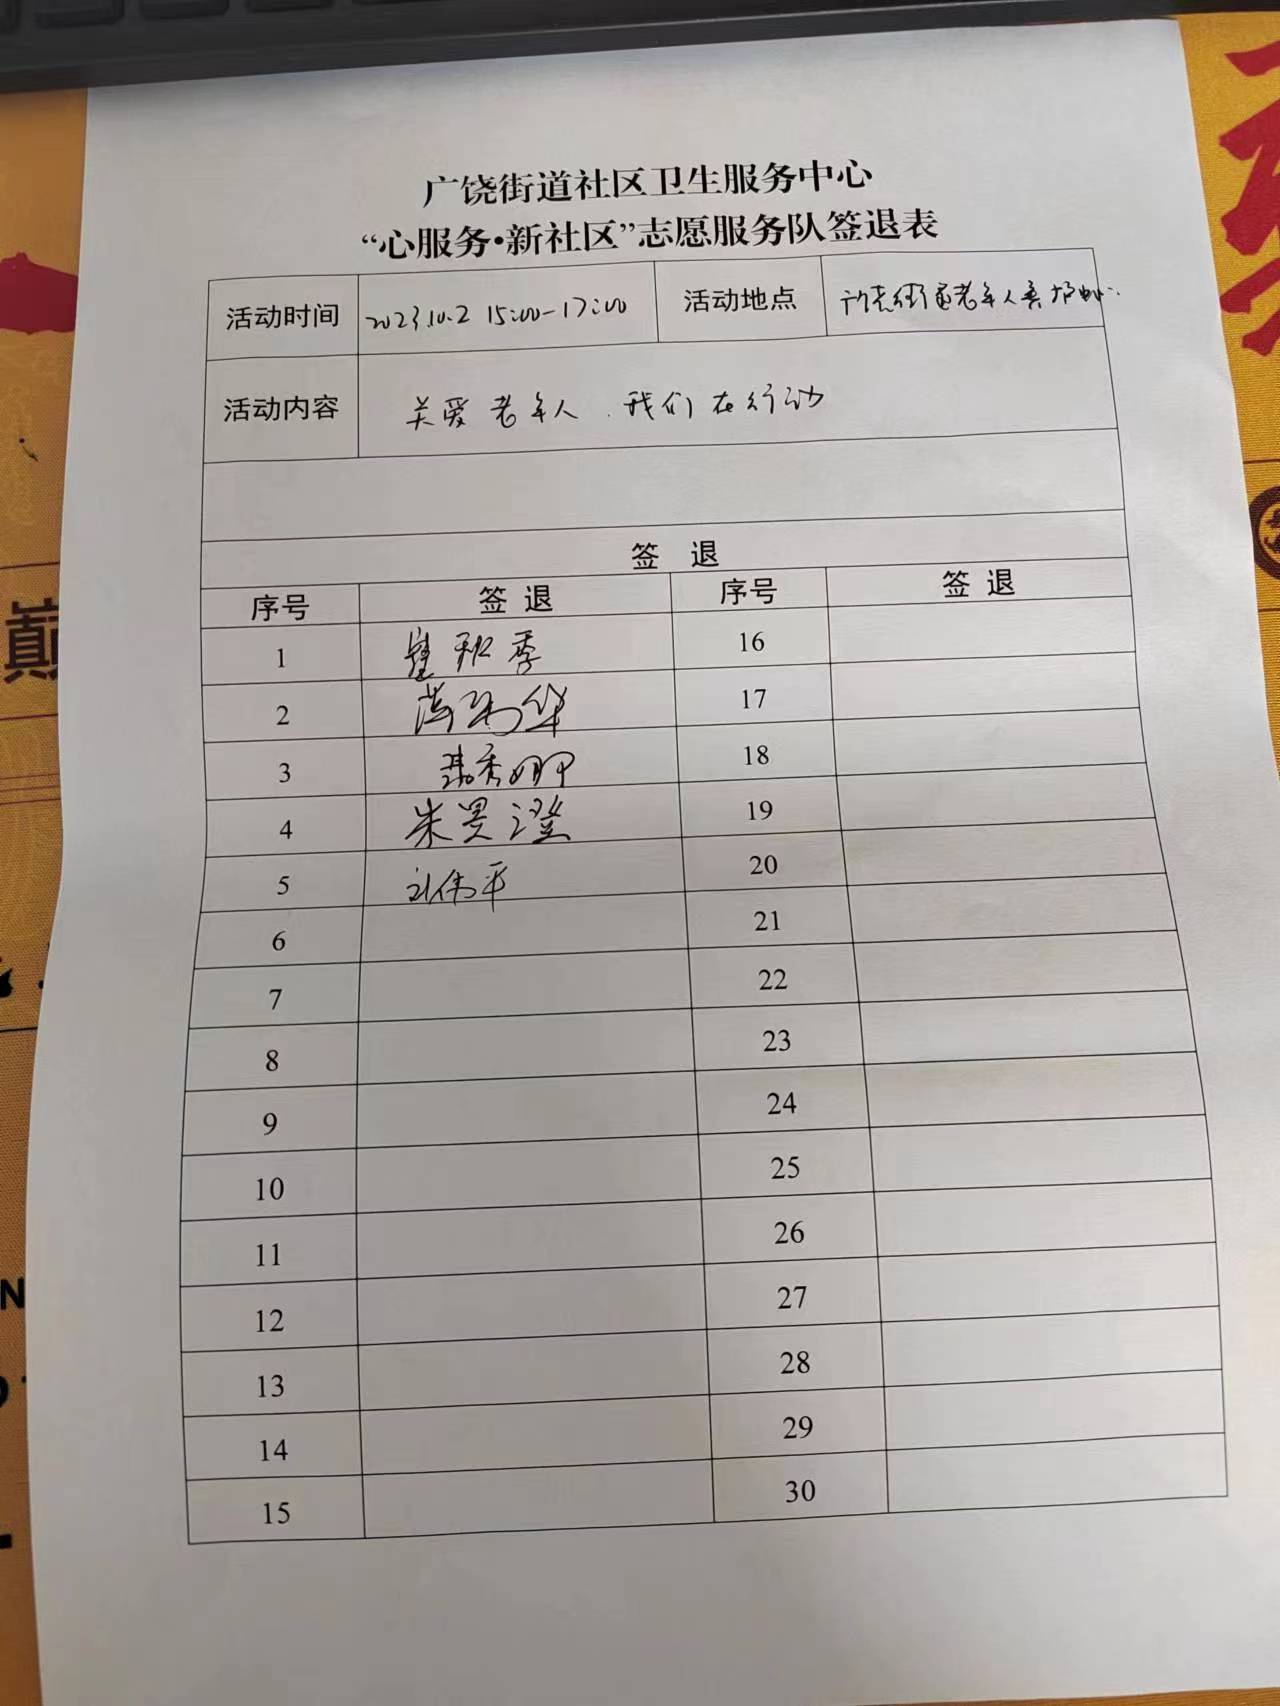 广饶街道社区卫生服务中心
“心服务•新社区”志愿服务队签退表
活动时间 2023.10.2 15:00-17:00 活动地点 街道老年人
活动内容 关爱老年人.我们在行动
签 退
序号 签 退 序号 签 退
1 季 16
2 华 17
3 秀娜 18
4 朱昊澄 19
5 刘伟平 20
6 21
7 22
8 23
9 24
10 25
11 26
12 27
13 28
14 29
15 30
巅
N